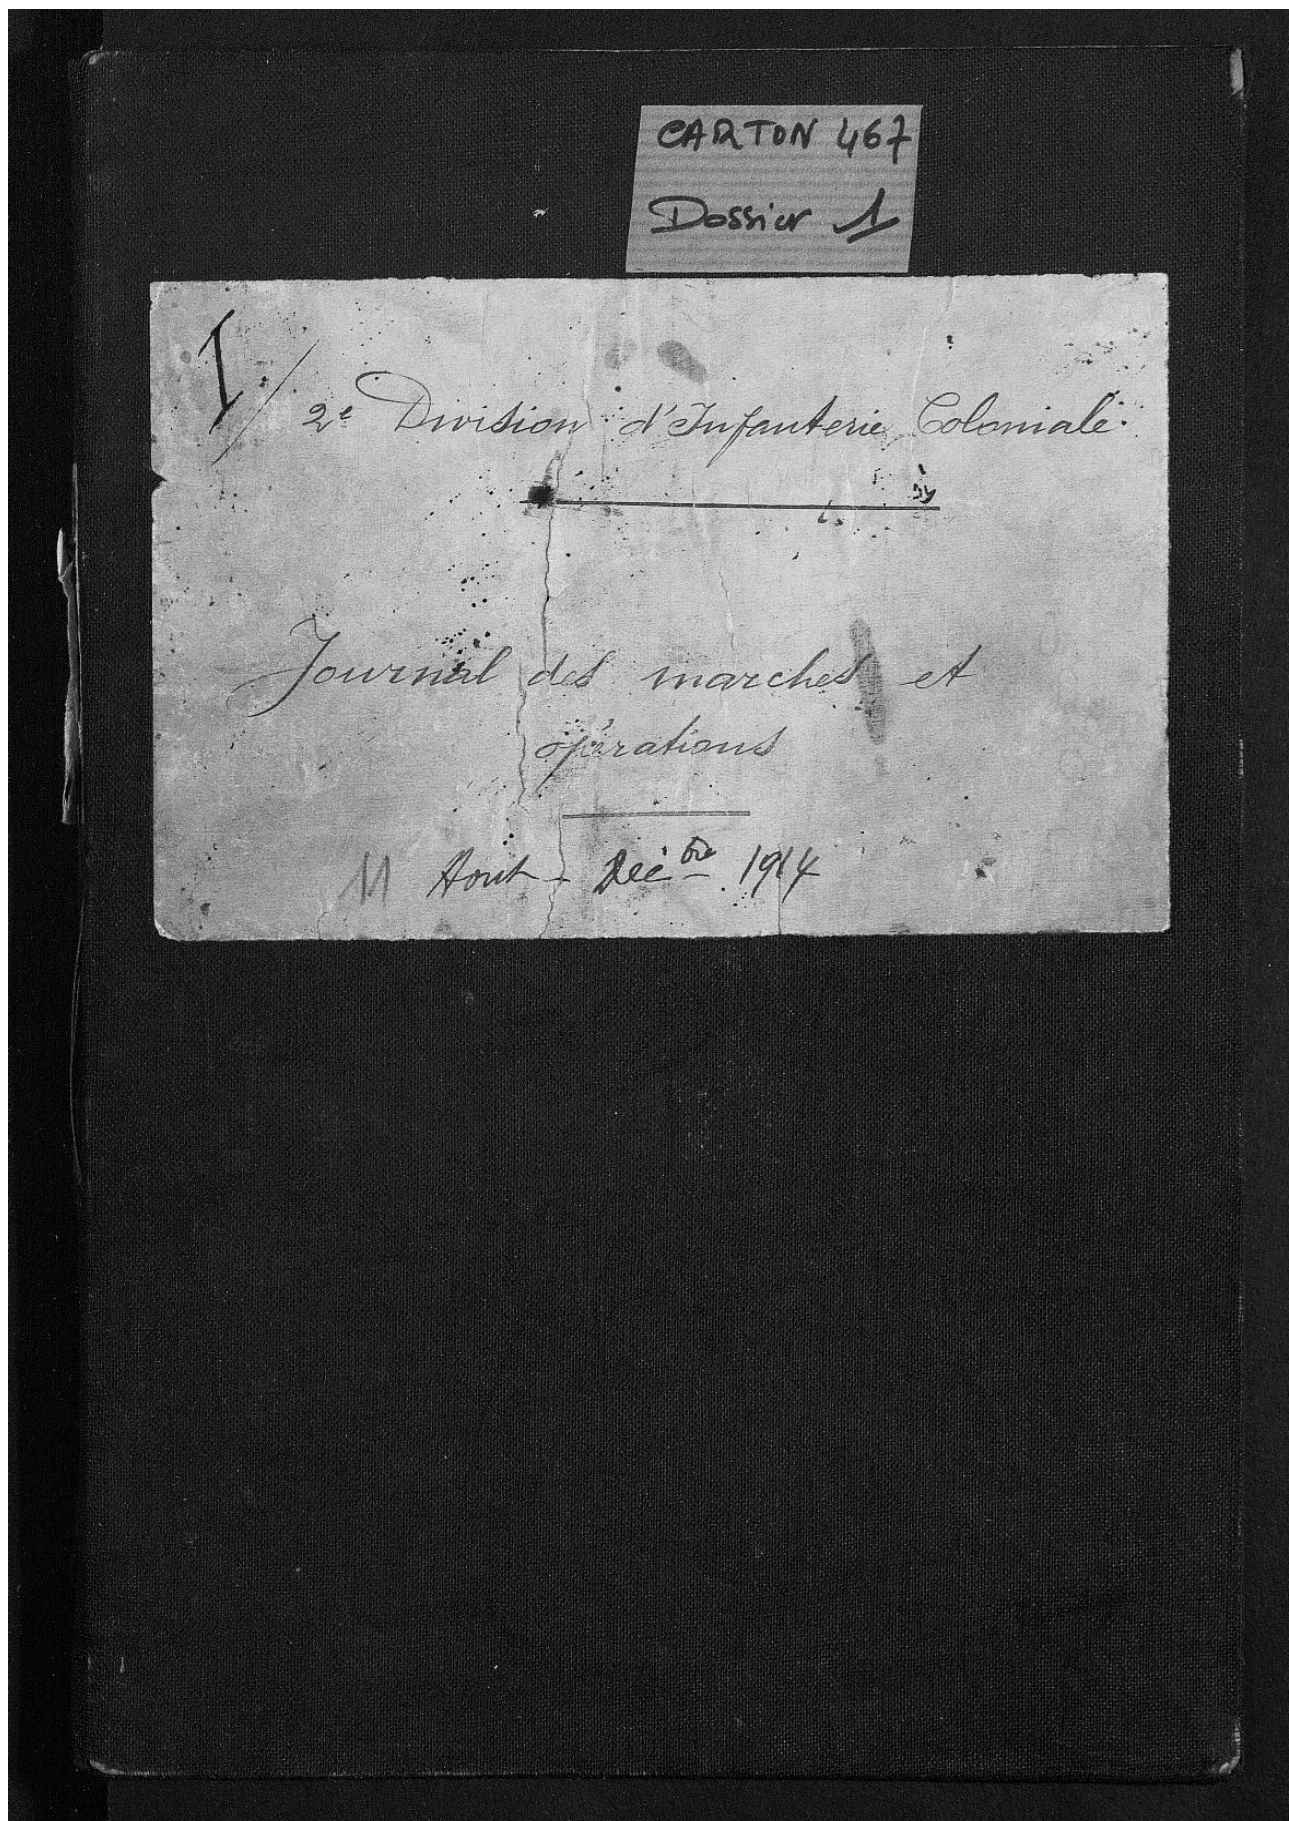 CARTON 467
Dossier 1
I/
2e Division d'Infanterie Coloniale.
Journal des marches et
opérations
11 Aout - Décbre 1914